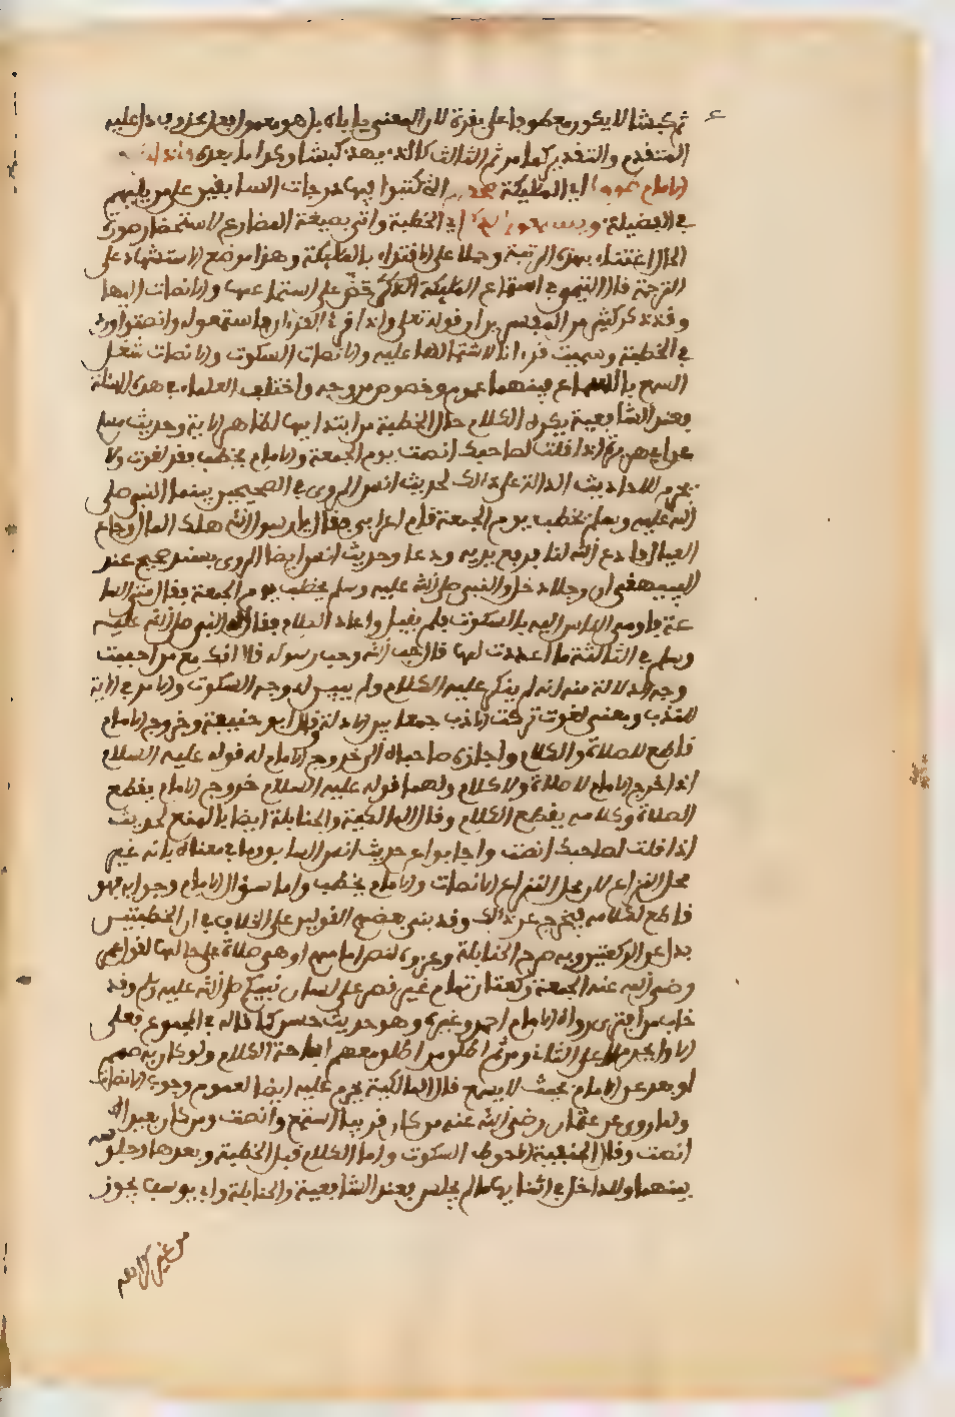 ثم كبشا لا يكون معطوفا على بقرة لان المعنى ياباه بل هو معمول فعل محذوف دل عليه
المتقدم والتقدير كما مر ثم الثالث كالذي يهدي كبشا وكذا ما بعده فاذا
الامام طووا اي الملائكة صحفهم التي كتبوا فيها درجات السابقين على من يليهم
في الفضيلة ويستمعون الذكر اي الخطبة واتى بصيغة المضارع لاستحضار صورة
الحال اعتناء بهذه المرتبة وحملا على الاقتداء بالملائكة وهذا موضع الاستشهاد على
الترجمة قال التيمي في استماع الملائكة حض على استماعها والانصات اليها
وقد ذكر كثير من المفسرين ان قوله تعلى واذا قرئ القرءان فاستمعوا له وانصتوا ورد
في الخطبة وسميت قرءانا لاشتمالها عليه والانصات السكوت والانصات شغل
السمع بالسماع فبينهما عموم وخصوص من وجه واختلف العلماء في هذه المسئلة
فعند الشافعية يكره الكلام حال الخطبة من ابتدايها لظاهر الاية وحديث مسلم
عن ابي هريرة اذا قلت لصاحبك انصت يوم الجمعة والامام يخطب فقد لغوت ولا
يحرم للاحاديث الدالة على ذلك لحديث انس المروي في الصحيحين بينما النبي صلى
الله عليه وسلم يخطب يوم الجمعة قام اعرابي فقال يا رسول الله هلك المال وجاع
العيال فادع الله لنا فرفع يديه ودعا وحديث انس ايضا المروي بسند صحيح عند
البيهقي ان رجلا دخل والنبي صلى الله عليه وسلم يخطب يوم الجمعة فقال متى السا
عة فاومى الناس اليه بالسكوت فلم يقبل واعاد الكلام فقال له النبي صلى الله عليه
وسلم في الثالثة ما اعددت لها قال حب الله وحب رسوله قال انك مع من احببت
وجه الدلالة منه انه لم ينكر عليه الكلام ولم يبين له وجه السكوت والامر في الاية
للندب ومعنى لغوت تركت الادب جمعا بين الادلة وقال ابو حنيفة وخروج الامام
قاطع للصلاة والكلام واجازه صاحباه الى خروج الامام له قوله عليه السلام
اذا خرج الامام لا صلاة ولا كلام ولهما قوله عليه السلام خروج الامام يقطع
الصلاة وكلامه يقطع الكلام وقال المالكية والحنابلة ايضا بالمنع لحديث
اذا قلت لصاحبك انصت واجابوا عن حديث انس السابق وما في معناه بانه غير
محل النزاع لان محل النزاع الانصات والامام يخطب واما سؤال الامام وجوابه فهو
قاطع لكلامه فيخرج عن ذلك وقد بنى بعضهم القولين على الخلاف في ان الخطبتين
بدل عن الركعتين وبه صرح الحنابلة وعزوه لنص امامهم او هي صلاة على حيالها لقول عمر
رضي الله عنه الجمعة ركعتان تمام غير قصر على لسان نبيكم صلى الله عليه وسلم وقد
خاب من افترى رواه الامام احمد وغيره وهو حديث حسن كما قاله في المجموع فعلى
الاول يحرم لا على الثاني ومن ثم اطلق من اطلق منهم اباحة الكلام ولو كان به صمم
او بعد عن الامام بحيث لا يسمع قال المالكية يحرم عليه ايضا لعموم وجوب الانصات
ولما روي عن عثمان رضي الله عنه من كان قريبا استمع وانصت ومن كان بعيدا
انصت وقال الحنفية الاحوط السكوت واما الكلام قبل الخطبة وبعدها وجلوسه
بينهما وللداخل في اثنايها ما لم يجلس فعند الشافعية والحنابلة وابي يوسف يجوز
من غير كراهة